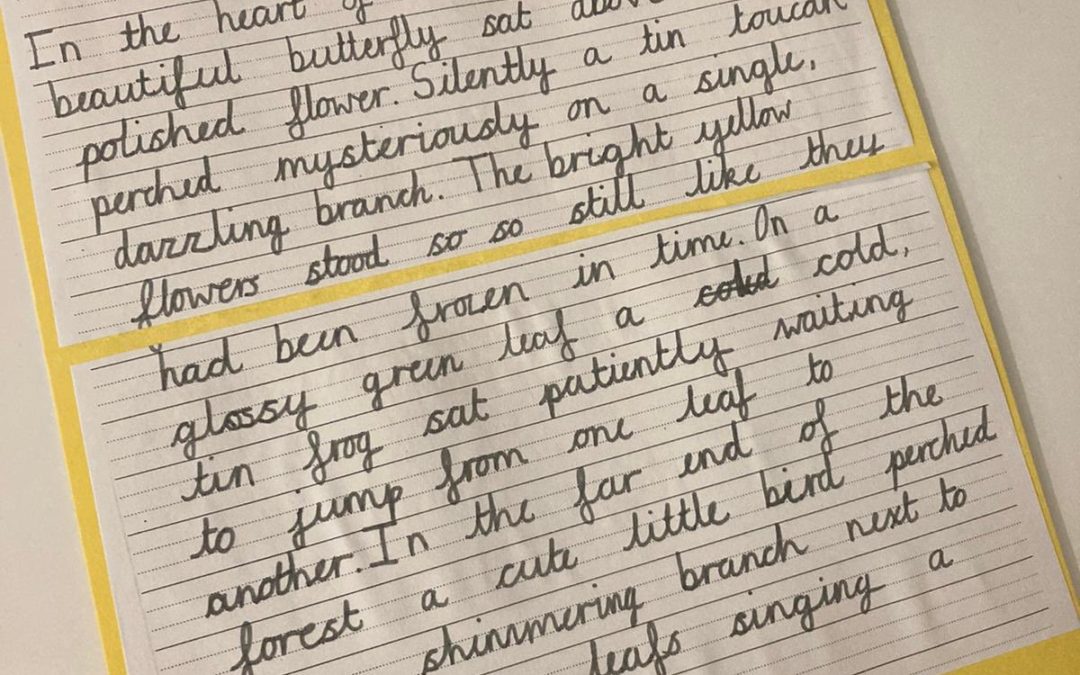 In the heart of
beautiful butterfly sat above
polished flower. Silently a tin toucan
perched mysteriously on a single,
dazzling branch. The bright yellow
flowers stood so so still like they
had been frozen in time. On a
glossy green leaf a cold,
tin frog sat patiently waiting
to jump from one leaf to
another. In the far end of the
forest a cute little bird perched
shinmering branch next to
leafs singing a